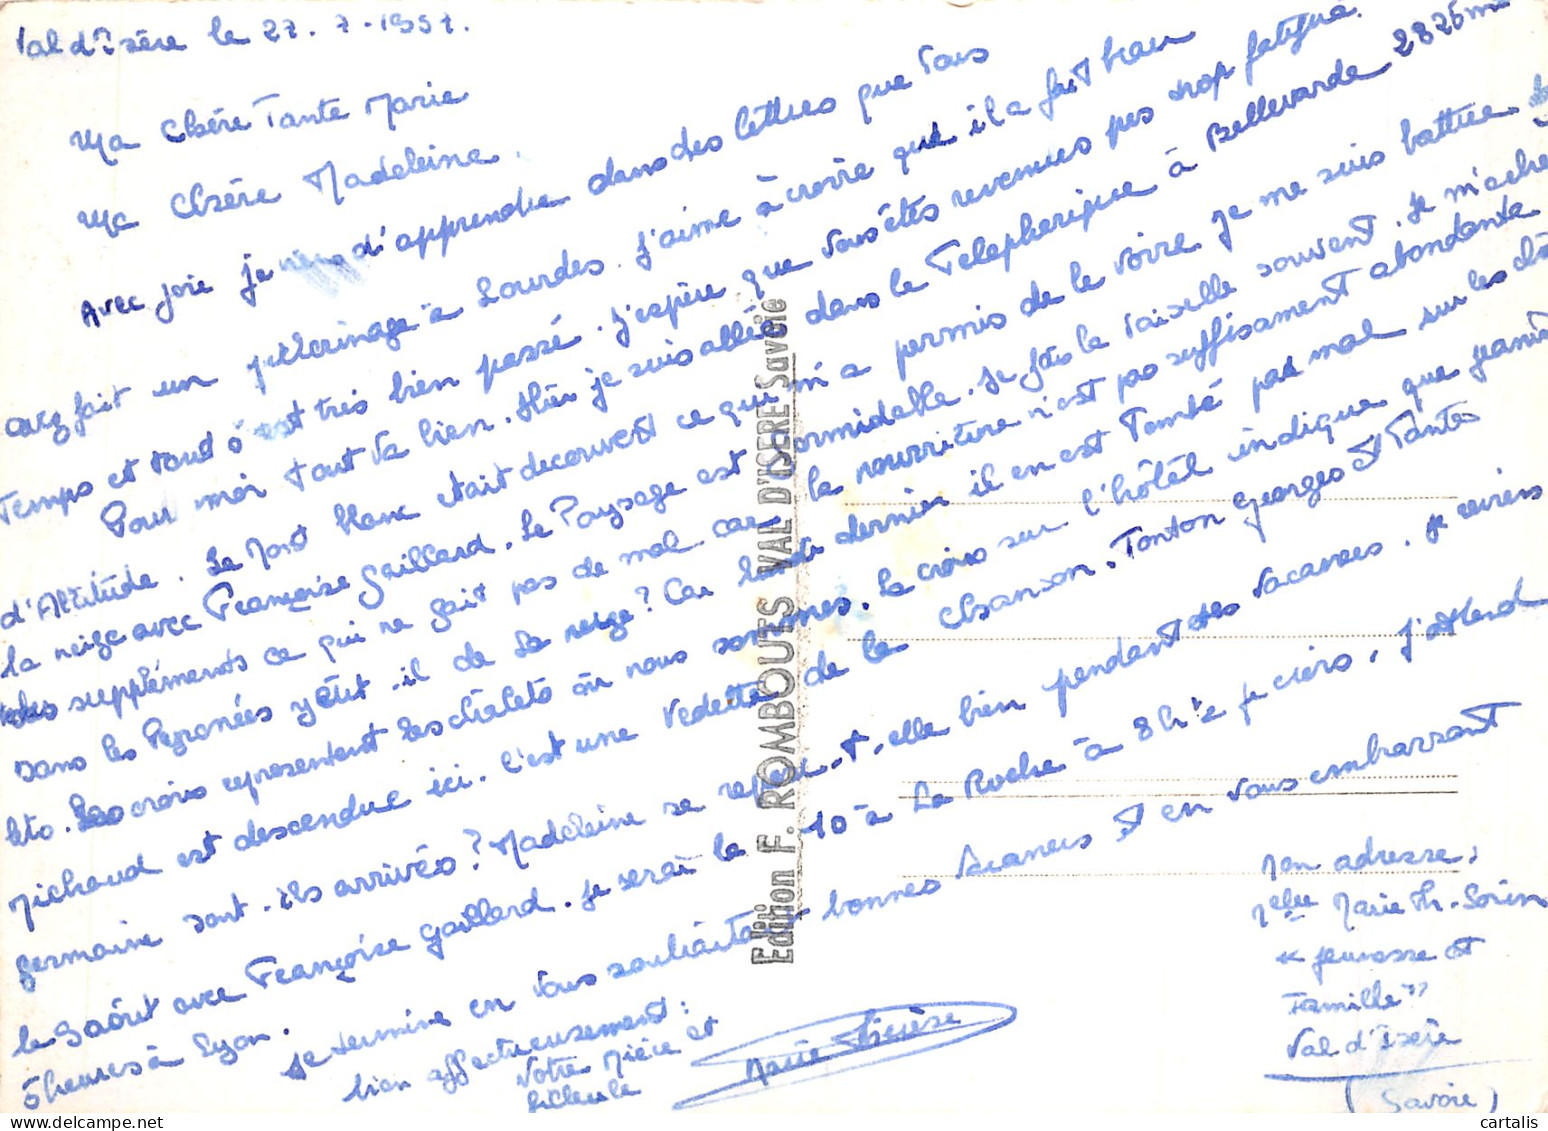 Val d'Isère le 27.7.1957.
Ma Chère Tante Marie
Ma Chère Madeleine.
Avec joie je viens d'apprendre dans des lettres que vous
avez fait un pélerinage à Lourdes. J'aime à croire que il a fait beau
Temps et tout s'est très bien passé. J'espère que vous êtes revenues pas trop fatiguée.
Pour moi tout va bien. Hier je suis allée dans le Telepherique à Bellevarde 2826m
d'Altitude. Le Mont blanc était decouvert ce qui m'a permis de le voire je me suis battue
la neige avec Françoise Gaillard. Le Paysage est formidable. Je fais la vaiselle souvent. Je m'achete
des suppléments ce qui ne fait pas de mal car la nourriture n'est pas suffisament abondante
Dans les Pyrenées y eut-il de la neige? Car lundi dernier il en est tombé pas mal sur les
Les croix representent les châlets où nous sommes. La croix sur l'hôtel indique que
Michaud est descendue ici. C'est une vedette de la Chanson. Tonton Georges et Tante
germaine sont-ils arrivés? Madeleine se repose-t-elle bien pendant ses vacances. Je reviens
le 9 août avec Françoise Gaillard. Je serai le 10 à La Roche à 8h ½ je crois. J'attend
5 heures à Lyon.
Je termine en vous souhaitant bonnes vacances et en vous embrassant
bien affectueusement:
Votre Nièce et
filleule
Marie Thérèse
Edition F. ROMBOUTS VAL D'ISERE Savoie
Mon adresse,
Melle Marie Th. Sorin
"Jeunesse et
Famille"
Val d'Isère
(Savoie)
cartalis